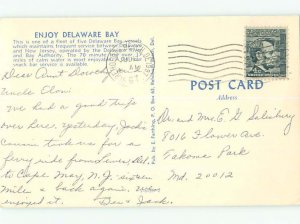 ENJOY DELAWARE BAY
This is one of a fleet of Five Delaware Bay vessels
which maintains frequent service between Delaware
and New Jersey, operated by the Delaware River
and Bay Authority. The 70 minute journey over 16
miles of calm water is most enjoyable. A
snack bar is available for
Dear Aunt
Uncle
I've had a good trip
over here. Yesterday, Jack
Cousin took us for a
ferry ride from Lewes, Del.
to Cape May, N.J. sixteen
miles & back again.
enjoyed it. Bea & Jack.
POST CARD
Address
Dr. and Mrs. E. G. Salisbury
8016 Flower Ave.
Takoma Park
Md. 20012